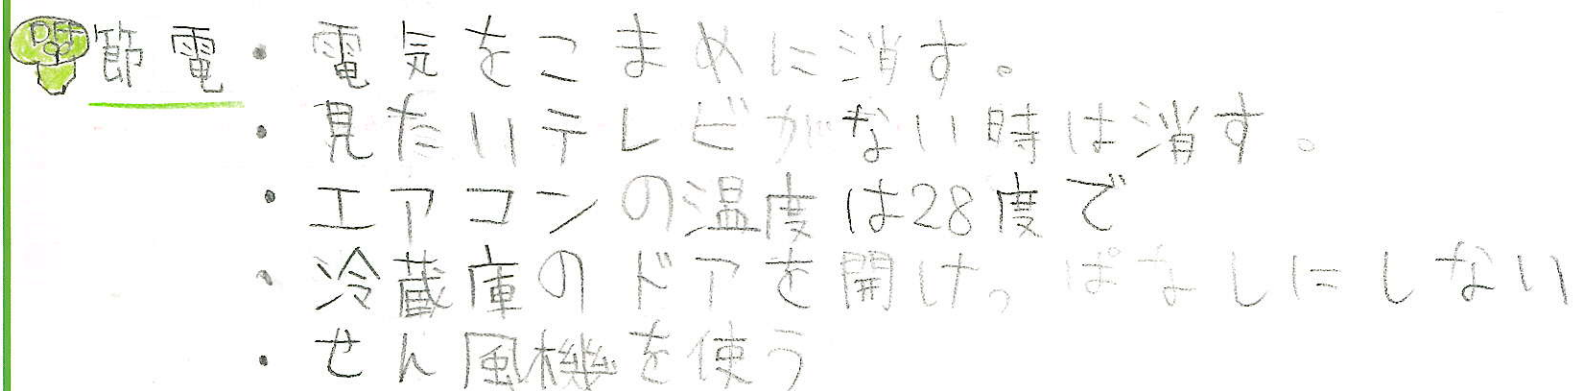 OFF
節電・電気をこまめに消す。
・見たいテレビがない時は消す。
・エアコンの温度は28度で
・冷蔵庫のドアを開けっぱなしにしない
・せん風機を使う